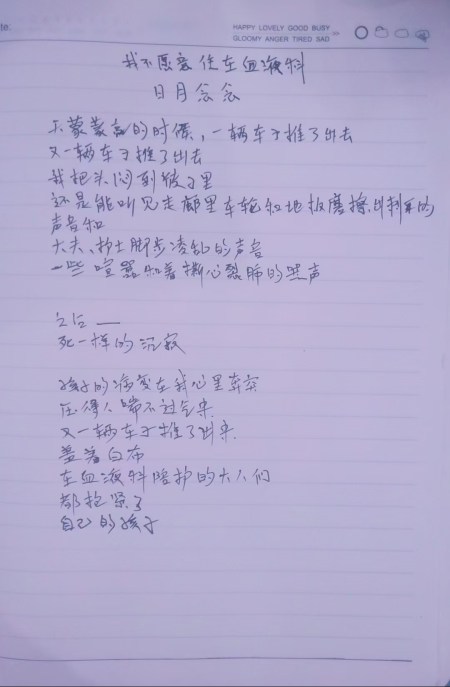 te:
HAPPY LOVELY GOOD BUSY
GLOOMY ANGER TIRED SAD
我不愿意住在血液科
日月念念
天蒙蒙亮的时候，一辆车子推了出去
又一辆车子推了出去
我把头闷到被子里
还是能听见走廊里车轮和地板磨擦出刺耳的
声音和
大夫、护士脚步凌乱的声音
一些喧嚣和着撕心裂肺的哭声
之后——
死一样的沉寂
孩子的病变在我心里
压得人喘不过气来
又一辆车子推了出来
盖着白布
在血液科陪护的大人们
都抱紧了
自己的孩子